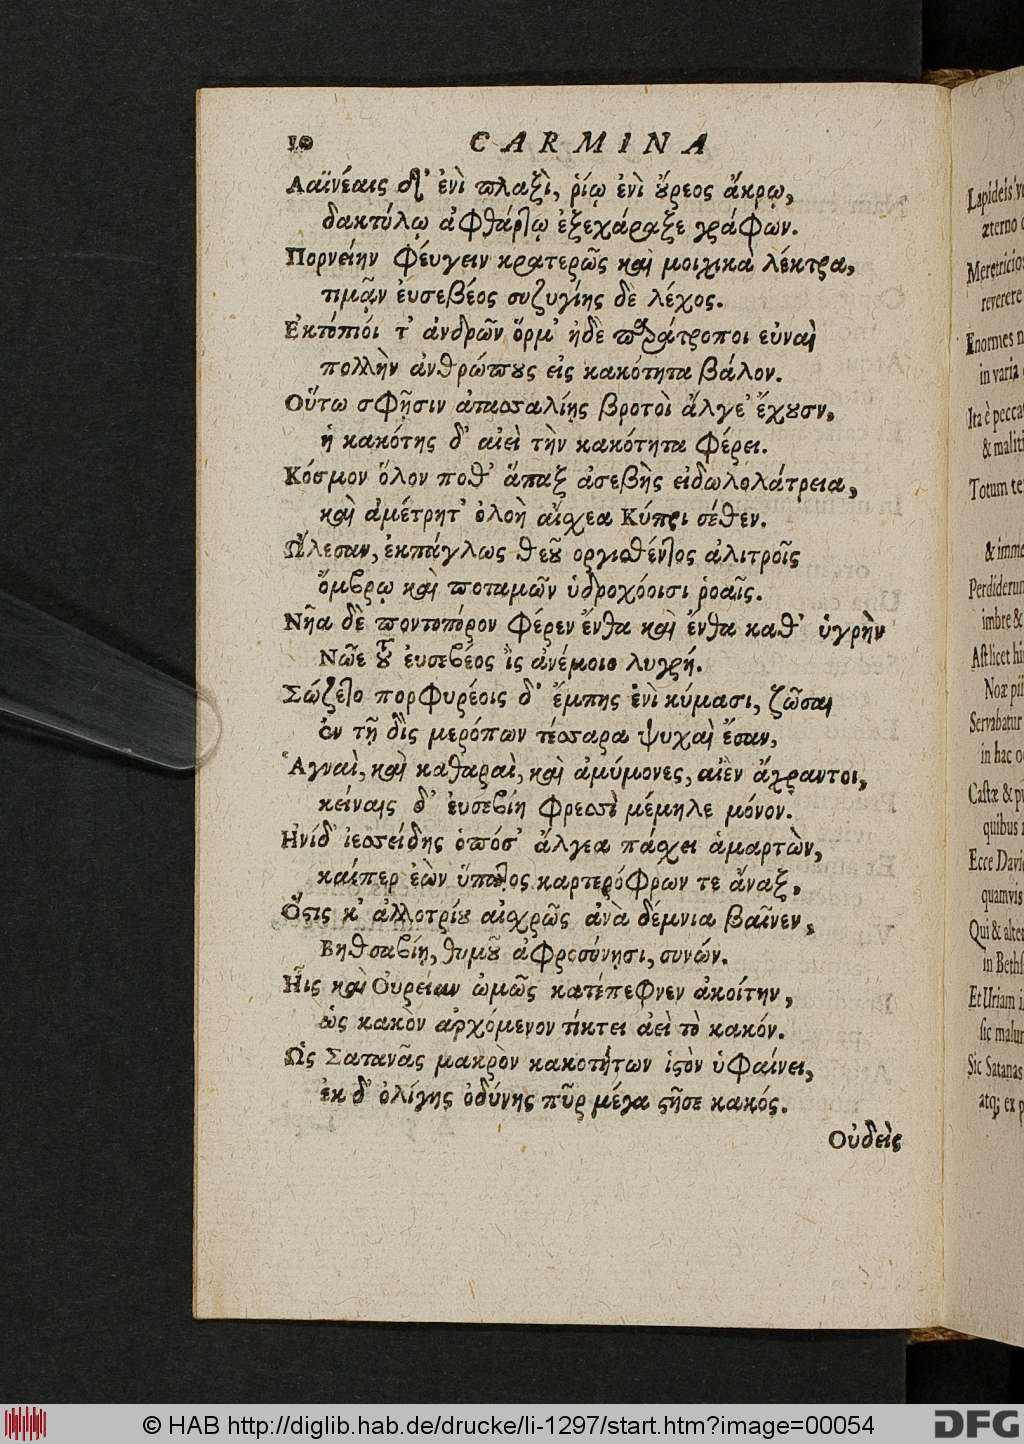 10 CARMINA
Λαϊνέαις δ' ἐνὶ πλαξὶ, ῥίῳ ἐνὶ οὔρεος ἄκρῳ,
δακτύλῳ ἀφθάρτῳ ἐξεχάραξε γράφων.
Πορνείην φέυγειν κρατερῶς καὶ μοιχικὰ λέκτρα,
τιμᾷν ἐυσεβέος συζυγίης δὲ λέχος.
Ἐκτόπιόι τ' ἀνδρῶν ὅρμ' ἠδὲ παράτροποι εὐναὶ
πολλὴν ἀνθρώπους εἰς κακότητα βάλον.
Οὕτω σφῇσιν ἀτασταλίῃς βροτοὶ ἄλγε' ἔχουσιν,
ἡ κακότης δ' αἰεὶ τὴν κακότητα φέρει.
Κόσμον ὅλον ποθ' ἅπαξ ἀσεβὴς εἰδωλολάτρεια,
καὶ ἀμέτρητ' ὀλοὴ αἴσχεα Κύπρι σέθεν.
Ὤλεσαν, ἐκπάγλως θεοῦ οργισθέντος ἀλιτροῖς
ὄμβρῳ καὶ ποταμῶν ὑδροχόοισι ῥοαῖς.
Νῆα δὲ ποντοπόρον φέρεν ἔνθα καὶ ἔνθα καθ' ὑγρὴν
Νῶε τοῦ ἐυσεβέος ἲς ἀνέμοιο λυγρή.
Σώζετο πορφυρέοις δ' ἔμπης ἐνὶ κύμασι, ζῶσαι
ἐν τῇ δὶς μερόπων τέσσαρα ψυχαὶ ἔσαν,
Ἁγναὶ, καὶ καθαραὶ, καὶ ἀμύμονες, αἰὲν ἄχραντοι,
κείναις δ' ἐυσεβίη φρεσσὶ μέμηλε μόνον.
Ηνίδ' ἰεσσείδης ὁπόσ' ἄλγεα πάσχει ἁμαρτὼν,
καίπερ ἐὼν ὕπατος καρτερόφρων τε ἄναξ,
Ὅστις κ' ἀλλοτρίου αἰσχρῶς ἀνὰ δέμνια βαῖνεν,
Βηθσαβίῃ, θυμοῦ ἀφροσύνῃσι, συνών.
Ἧς καὶ Ουρείαν ὠμῶς κατέπεφνεν ἀκοίτην,
ὡς κακὸν ἀρχόμενον τίκτει ἀεὶ τὸ κακόν.
Ὣς Σατανᾶς μακρὸν κακοτήτων ἱστὸν ὑφαίνει,
ἐκ δ' ὀλίγης ὀδύνης πῦρ μέγα στῆσε κακός.
Οὐδεὶς
Lapideis
æterno
Meretricios
reverere
Enormes
in varia
Ita è pecca
& maliti
Totum
& imme
Perdiderun
imbre &
Ast licet
Noæ pii
Servabatur
in hac
Castæ &
quibus
Ecce Davi
quamvis
Qui & alte
in Beths
Et Uriam
sic malum
Sic Satanas
atq; ex
© HAB http://diglib.hab.de/drucke/li-1297/start.htm?image=00054
DFG